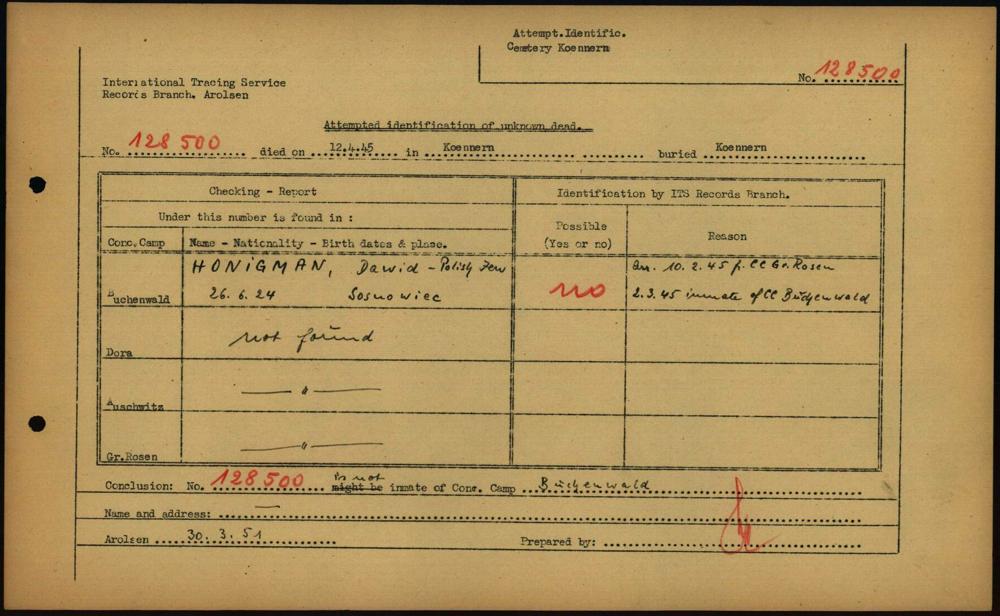 Attempt.Identific.
Cemetery Koennern
No. 128500
International Tracing Service
Records Branch. Arolsen
Attempted identification of unknown dead.
No. 128 500 died on 12.4.45 in Koennern buried Koennern
Checking - Report
Identification by ITS Records Branch.
Under this number is found in :
Possible
(Yes or no)
Reason
Conc.Camp
Name - Nationality - Birth dates & place.
HONIGMAN, Dawid - Polish Jew
Arr. 10.2.45 f. CC Gr. Rosen
Buchenwald
26.6.24 Sosnowiec
no
2.3.45 inmate of CC Buchenwald
Dora
not found
Auschwitz
— " —
Gr.Rosen
— " —
Conclusion: No. 128500 is not might be inmate of Conc. Camp Buchenwald
Name and address: —
Arolsen 30.3.51
Prepared by: